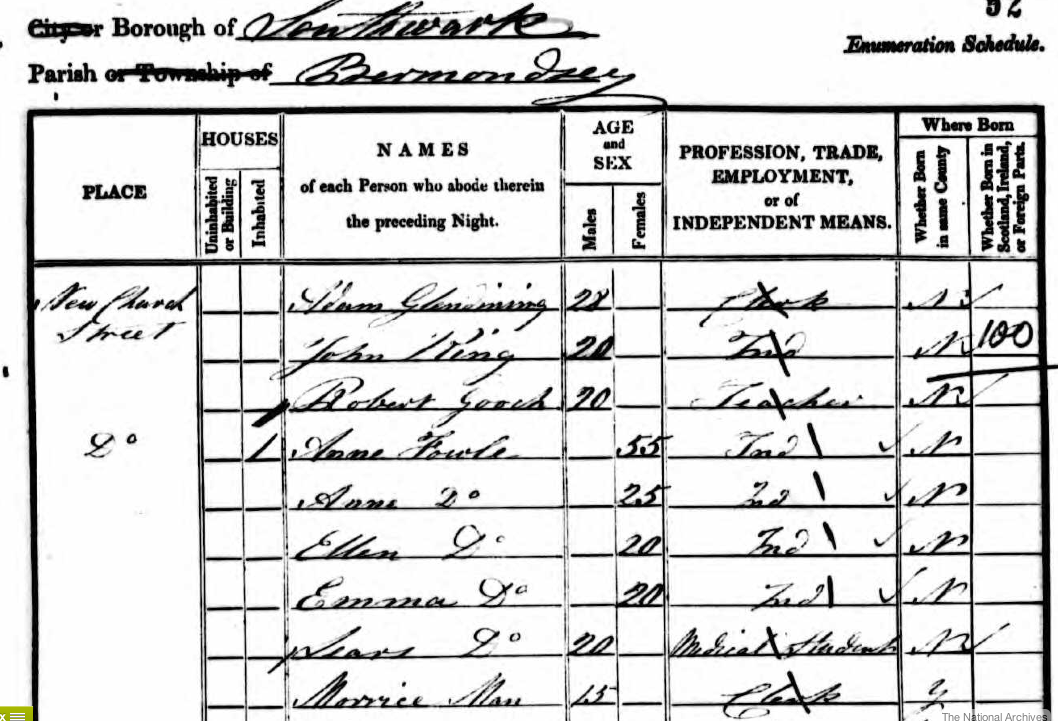 52
City or Borough of Southwark
Enumeration Schedule.
Parish or Township of Bermondsey
PLACE
HOUSES
Uninhabited or Building
Inhabited
NAMES
of each Person who abode therein
the preceding Night.
AGE
and
SEX
Males
Females
PROFESSION, TRADE,
EMPLOYMENT,
or of
INDEPENDENT MEANS.
Where Born
Whether Born in same County
Whether Born in Scotland, Ireland, or Foreign Parts.
New Church Adam Glendining 28 Clerk N
Street
John King 20 Ind N 100
Robert Gooch 20 Teacher N
Do 1 Anne Fowle 55 Ind N
Anne Do 25 Ind N
Ellen Do 20 Ind N
Emma Do 20 Ind N
Sears Do 20 Medical Student N
Morrice Man 15 Clerk Y
The National Archives